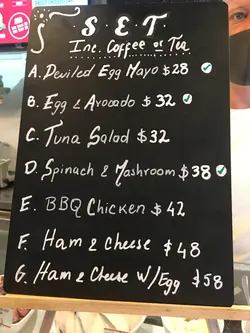 S.E.T
Inc. Coffee or Tea
A. Deviled Egg Mayo $28
B. Egg & Avocado $32
C. Tuna Salad $32
D. Spinach & Mashroom $38
E. BBQ Chicken $42
F. Ham & Cheese $48
G. Ham & Cheese W/Egg $58